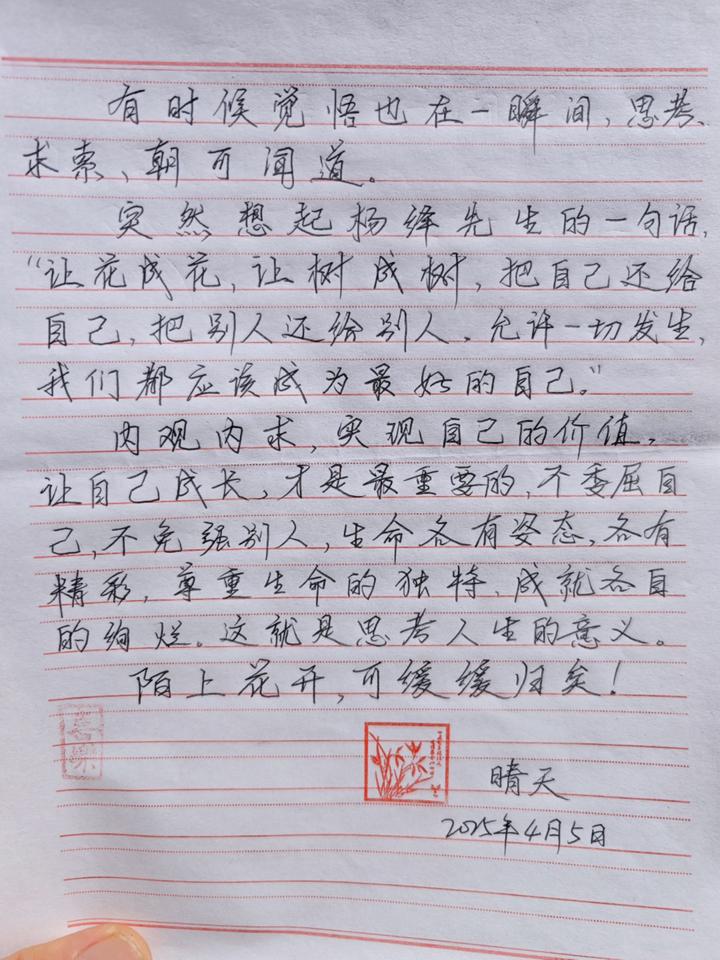 有时候觉悟也在一瞬间、思考、
求索、朝可闻道。
突然想起杨绛先生的一句话，
“让花成花，让树成树，把自己还给
自己，把别人还给别人。允许一切发生，
我们都应该成为最好的自己。”
内观内求，实现自己的价值。
让自己成长，才是最重要的，不委屈自
己，不免强别人，生命各有姿态，各有
精彩，尊重生命的独特，成就各自
的绚烂。这就是思考人生的意义。
陌上花开，可缓缓归矣！
晴天
2025年4月5日